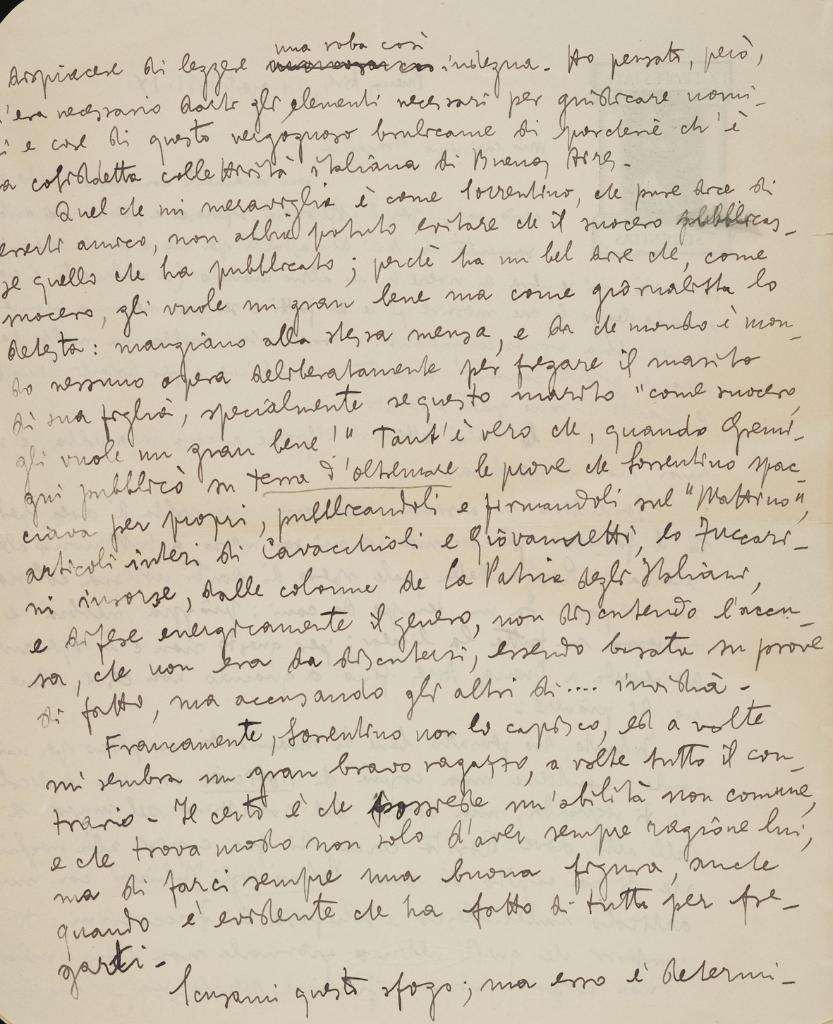 dispiacere di leggere una roba così indegna. Ho pensato, però,
c'era necessario darti gli elementi necessari per giudicare uomi-
ni e cose di questo vergognoso brulicame di porcherie ch'è
la cosiddetta collettività italiana di Buenos Aires.
Quel che mi meraviglia è come Sorrentino, che pure dice di
esserti amico, non abbia potuto evitare che il suocero pubblicas-
se quello che ha pubblicato; perchè ha un bel dire che, come
suocero, gli vuole un gran bene ma come giornalista lo
detesta: mangiano alla stessa mensa, e da che mondo è mon-
do nessuno opera deliberatamente per fregare il marito
di sua figlia, specialmente se questo marito "come suocero,
gli vuole un gran bene!" Tant'è vero che, quando Gremi-
gni pubblicò su Terra d'oltremare le prove che Sorrentino spac-
ciava per propri, pubblicandoli e firmandoli sul "Mattino",
articoli interi di Cavacchioli e Giovannetti, lo Zuccari-
ni insorse, dalle colonne de La Patria degli Italiani,
e difese energicamente il genero, non discutendo l'accu-
sa, che non era da discutersi, essendo basata su prove
di fatto, ma accusando gli altri di.... invidia.
Francamente, Sorrentino non lo capisco, ed a volte
mi sembra un gran bravo ragazzo, a volte tutto il con-
trario. Il certo è che possiede un'abilità non comune,
e che trova modo non solo d'aver sempre ragione lui,
ma di farci sempre una buona figura, anche
quando è evidente che ha fatto di tutto per fre-
garti.
Scusami questo sfogo; ma esso è determi-